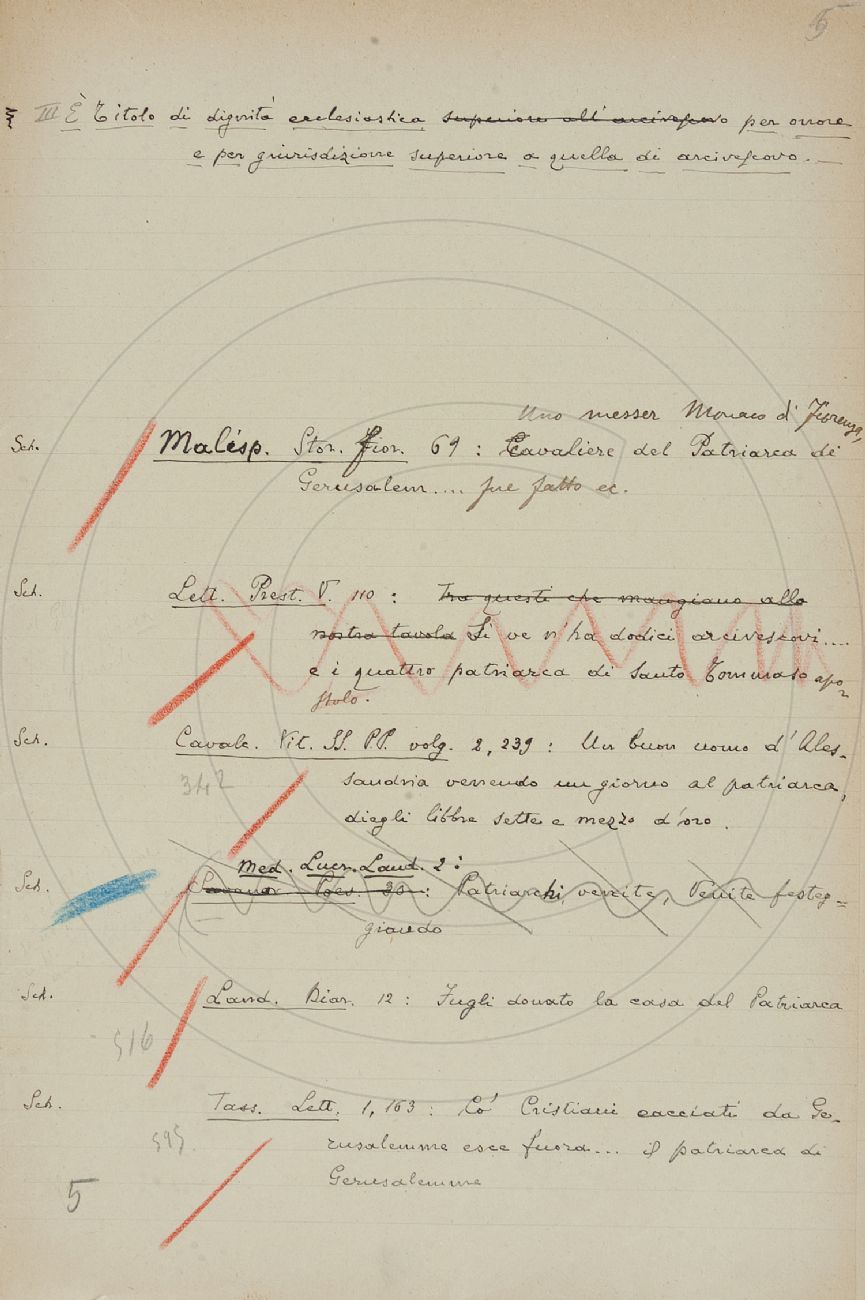 5
§ III È Titolo di dignità ecclesiastica superiore all'arcivescovo per onore
e per giurisdizione superiore a quella di arcivescovo. —
Uno messer Monaco d' Fiorenza,
Sch. Malesp. Stor. Fior. 69 : Cavaliere del Patriarca di
Gerusalem.... fue fatto ec.
Sch. Lett. Prest. V. 110 : Tra questi che mangiano alla
nostra tavola Si ve n'ha dodici arcivescovi....
e i quattro patriarca di Santo Tommaso apo-
stolo.
Sch. Cavalc. Vit. SS. PP. volg. 2, 239 : Un buon uomo d'Ales-
342 sandria venendo un giorno al patriarca,
diegli libbre sette e mezzo d'oro.
Med. Lucr. Laud. 2 :
Sch. Poes. 30 : Patriarchi venite, Venite festeg-
giando
Sch. Land. Diar. 12 : Fugli donato la casa del Patriarca
516
Sch. Tass. Lett. 1, 163 : Co' Cristiani cacciati da Ge-
595. rusalemme esce fuora... il patriarca di
Gerusalemme
5